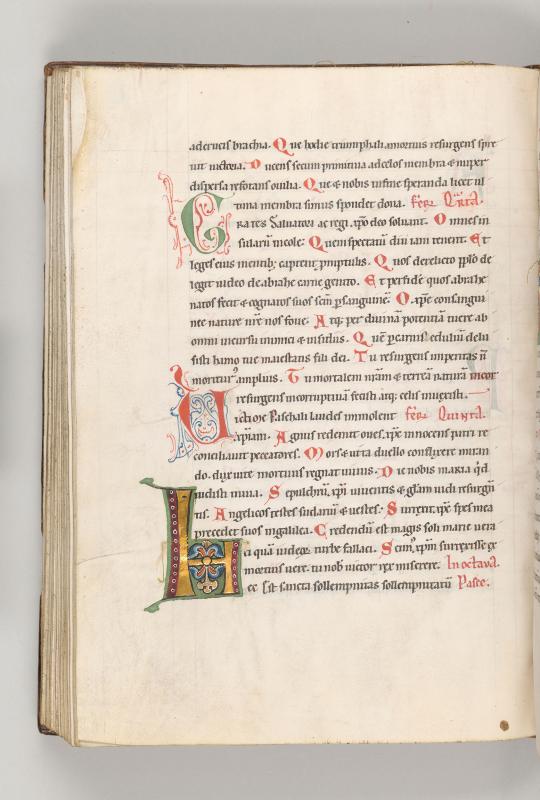 ad crucis brachia. Que hodie triumphali amotius resurgens spre
uit uictoria. Ducens secum primitiua ad celos membra & nuper
dispersa reforans ouilia. Que & nobis in fine speranda licet ul
tima membra simus spondet dona. feria Quarta.
Grates Saluatori ac regi xpo deo soluant. Omnes in
sularū incole. Quem spectatū diu iam tenent. Et
leges eius mentib; captent pmptulis. Quos derelicto pplo de
legit uideo de abrahe carne genito. Et p fidē quos abrahe
natos fecit & cognatos suos scm̄ p sanguinē. O xpe consangui
nee nature nr̄e nos foue. Atq; per diuinā potentiā tuere ab
omni incursu inimici & insidiis. Quē p carnis edulium delu
sisti hamo tue maiestatis fili dei. Tu resurgens imperitas n̄
moriturꝰ amplius. Tu mortalem nr̄am & terreā naturā incor
resurgens incorruptiuā fecisti atq; celis inuexisti.
Victime Paschali laudes immolent feria Quinta.
xpiani. Agnus redemit oues. xpc innocens patri re
conciliauit peccatores. Mors & uita duello conflixere miran
do. dux uite mortuus regnat uiuus. Dic nobis maria q̄d
uidisti in uia. Sepulchrū xpi uiuentis & głam uidi resurgn̄
tis. Angelicos testes sudariū & uestes. Surrexit xpc spes mea
precedet suos in galilea. Credendū est magis soli marie uera
ci quā iudeoꝝ turbe fallaci. Scimꝰ xpm surrexisse ex
mortuis uere. tu nob uictor rex miserere. In octaua
Hec est sancta sollempnitas sollempnitatū Pasce.